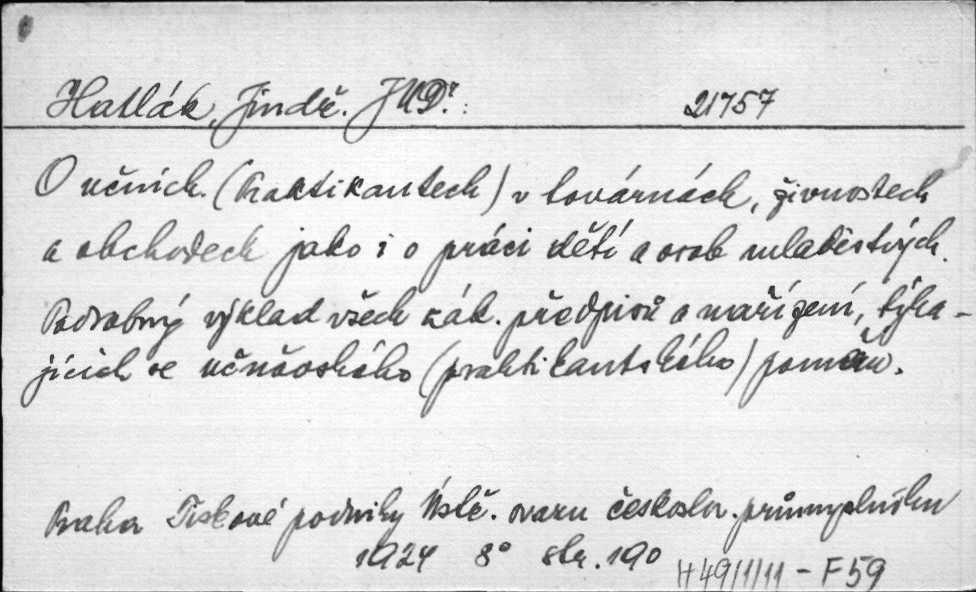 Hatlák, Jindř. JUDr. 21757
O učních (Praktikantech) v továrnách, živnostech
a obchodech jako i o práci dětí a osob mladistvých.
Podrobný výklad všech zák. předpisů a nařízení, týka-
jících se učňovského (praktikantského) poměru.
Praha Tiskové podniky Ústř. svazu českoslov. průmyslníků
1924 8° str. 190 H49/1/11 - F59